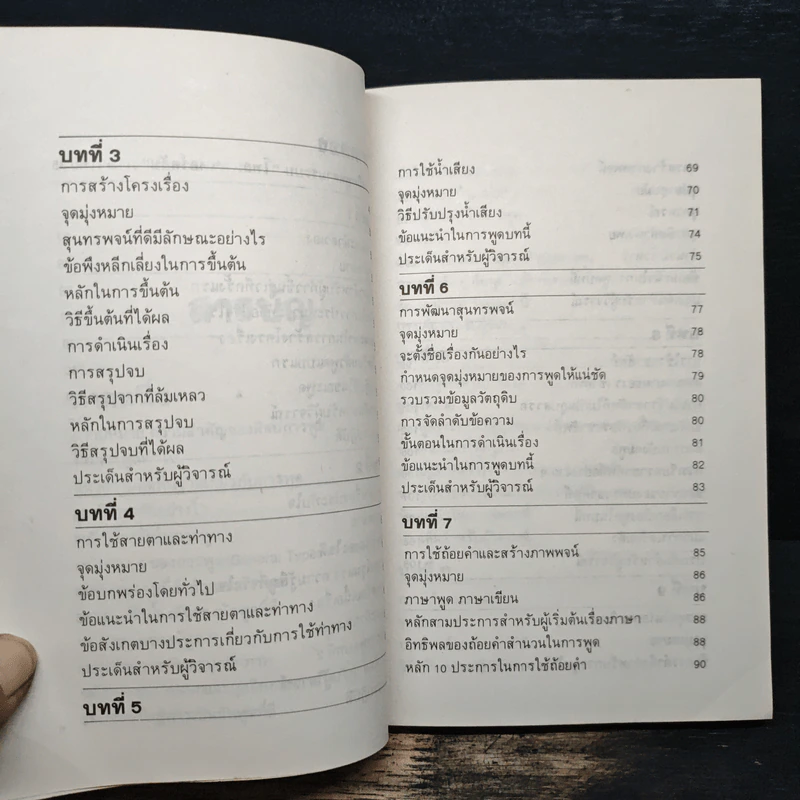 บทที่ 3
การสร้างโครงเรื่อง
จุดมุ่งหมาย
สุนทรพจน์ที่ดีมีลักษณะอย่างไร
ข้อพึงหลีกเลี่ยงในการขึ้นต้น
หลักในการขึ้นต้น
วิธีขึ้นต้นที่ได้ผล
การดำเนินเรื่อง
การสรุปจบ
วิธีสรุปจากที่ล้มเหลว
หลักในการสรุปจบ
วิธีสรุปจบที่ได้ผล
ประเด็นสำหรับผู้วิจารณ์
บทที่ 4
การใช้สายตาและท่าทาง
จุดมุ่งหมาย
ข้อบกพร่องโดยทั่วไป
ข้อแนะนำในการใช้สายตาและท่าทาง
ข้อสังเกตบางประการเกี่ยวกับการใช้ท่าทาง
ประเด็นสำหรับผู้วิจารณ์
บทที่ 5
การใช้น้ำเสียง 69
จุดมุ่งหมาย 70
วิธีปรับปรุงน้ำเสียง 71
ข้อแนะนำในการพูดบทนี้ 74
ประเด็นสำหรับผู้วิจารณ์ 75
บทที่ 6
การพัฒนาสุนทรพจน์ 77
จุดมุ่งหมาย 78
จะตั้งชื่อเรื่องกันอย่างไร 78
กำหนดจุดมุ่งหมายของการพูดให้แน่ชัด 79
รวบรวมข้อมูลวัตถุดิบ 80
การจัดลำดับข้อความ 80
ขั้นตอนในการดำเนินเรื่อง 81
ข้อแนะนำในการพูดบทนี้ 82
ประเด็นสำหรับผู้วิจารณ์ 83
บทที่ 7
การใช้ถ้อยคำและสร้างภาพพจน์ 85
จุดมุ่งหมาย 86
ภาษาพูด ภาษาเขียน 86
หลักสามประการสำหรับผู้เริ่มต้นเรื่องภาษา 88
อิทธิพลของถ้อยคำสำนวนในการพูด 88
หลัก 10 ประการในการใช้ถ้อยคำ 90